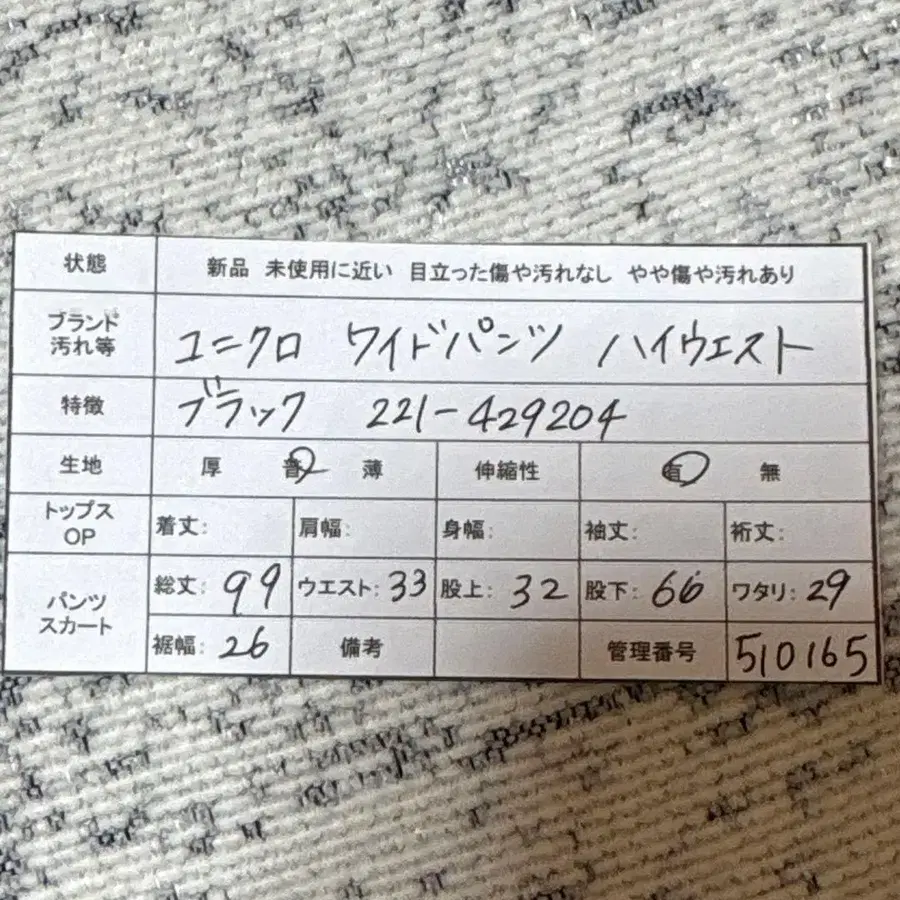 状態 新品 未使用に近い 目立った傷や汚れなし やや傷や汚れあり
ブランド
汚れ等 ユニクロ ワイドパンツ ハイウエスト
特徴 ブラック 221-429204
生地 厚 普 薄 伸縮性 有 無
トップス
OP 着丈: 肩幅: 身幅: 袖丈: 裄丈:
パンツ
スカート 総丈: 99 ウエスト: 33 股上: 32 股下: 66 ワタリ: 29
裾幅: 26 備考 管理番号 510165